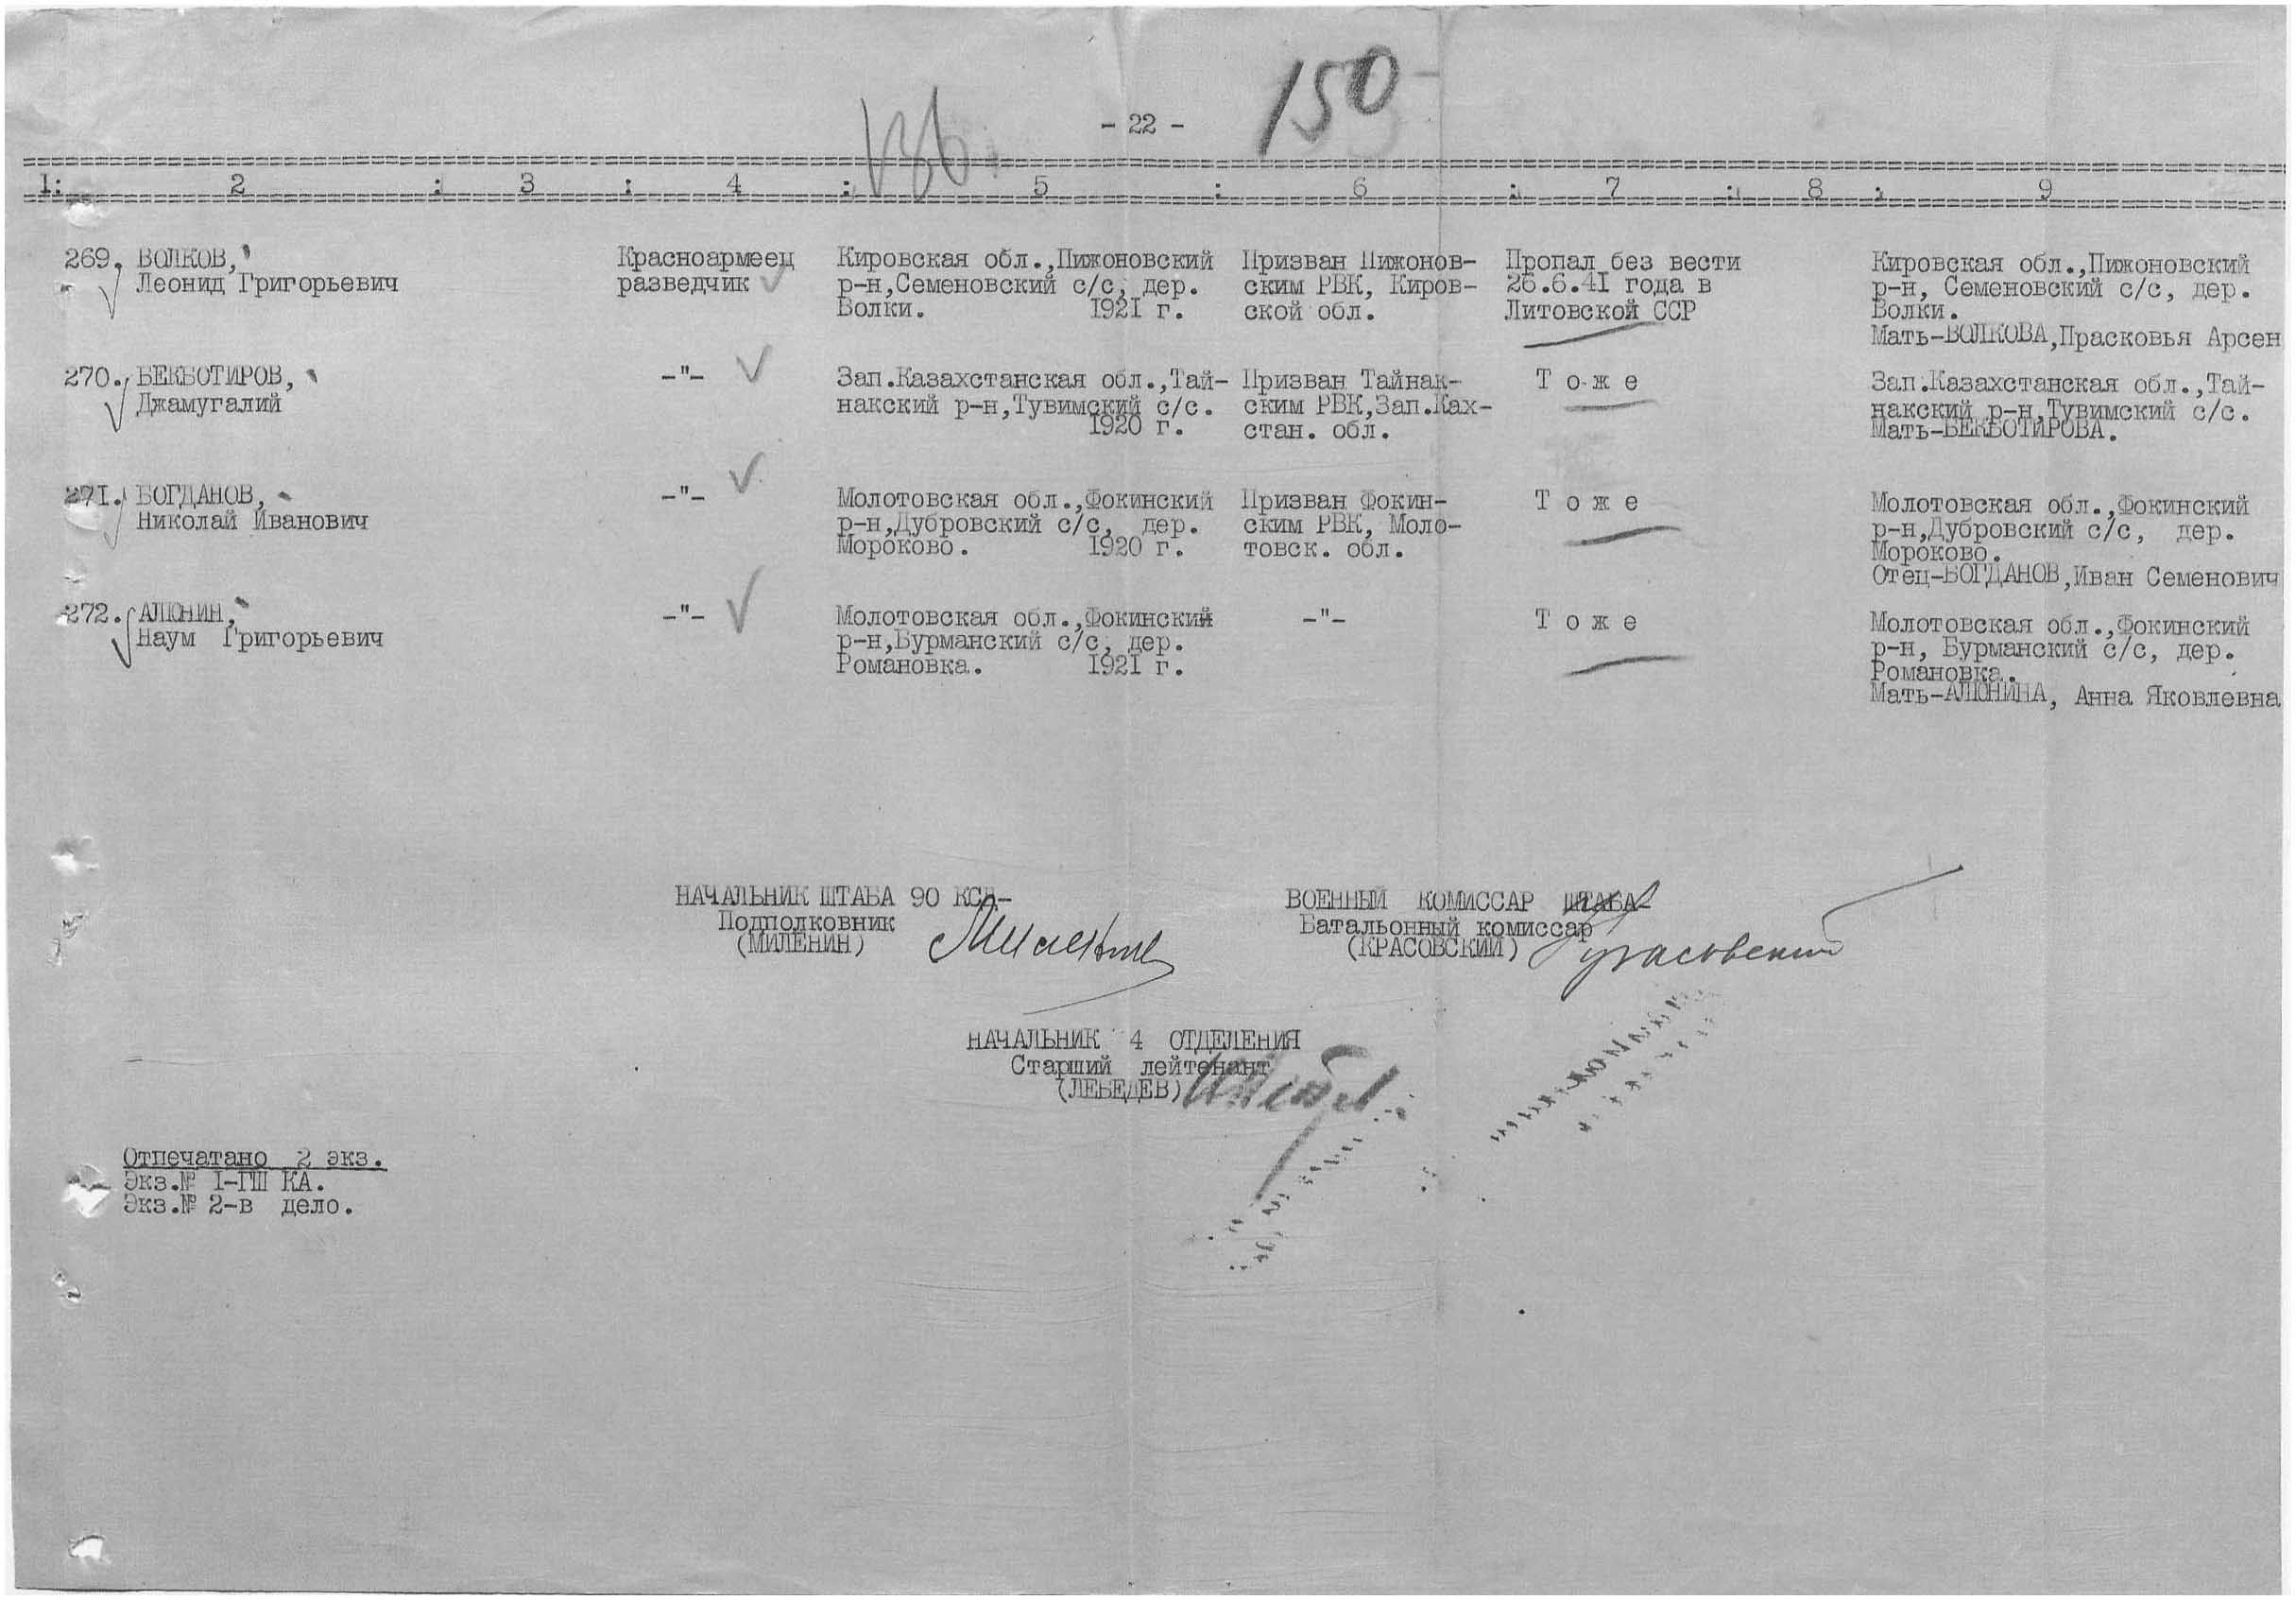 150
- 22 -
1: 2 : 3 : 4 : 5 : 6 : 7 : 8 : 9
269. ВОЛКОВ,
Леонид Григорьевич
Красноармеец
разведчик
Кировская обл.,Пижоновский
р-н,Семеновский с/с, дер.
Волки. 1921 г.
Призван Пижонов-
ским РВК, Киров-
ской обл.
Пропал без вести
26.6.41 года в
Литовской ССР
Кировская обл.,Пижоновский
р-н, Семеновский с/с, дер.
Волки.
Мать-ВОЛКОВА,Прасковья Арсен
270. БЕКБОТИРОВ,
Джамугалий
-"-
Зап.Казахстанская обл.,Тай-
накский р-н,Тувимский с/с.
1920 г.
Призван Тайнак-
ским РВК,Зап.Ках-
стан. обл.
Т о ж е
Зап.Казахстанская обл.,Тай-
накский р-н,Тувимский с/с.
Мать-БЕКБОТИРОВА.
271. БОГДАНОВ,
Николай Иванович
-"-
Молотовская обл.,Фокинский
р-н,Дубровский с/с, дер.
Мороково. 1920 г.
Призван Фокин-
ским РВК, Моло-
товск. обл.
Т о ж е
Молотовская обл.,Фокинский
р-н,Дубровский с/с, дер.
Мороково.
Отец-БОГДАНОВ,Иван Семенович
272. АЛЮНИН,
Наум Григорьевич
-"-
Молотовская обл.,Фокинский
р-н,Бурманский с/с, дер.
Романовка. 1921 г.
-"-
Т о ж е
Молотовская обл.,Фокинский
р-н, Бурманский с/с, дер.
Романовка.
Мать-АЛЮНИНА, Анна Яковлевна
НАЧАЛЬНИК ШТАБА 90 КСД-
Подполковник
(МИЛЕНИН)
ВОЕННЫЙ КОМИССАР ШТАБА-
Батальонный комиссар
(КРАСОВСКИЙ)
НАЧАЛЬНИК 4 ОТДЕЛЕНИЯ
Старший лейтенант
(ЛЕБЕДЕВ)
Отпечатано 2 экз.
Экз.№ 1-ГШ КА.
Экз.№ 2-в дело.